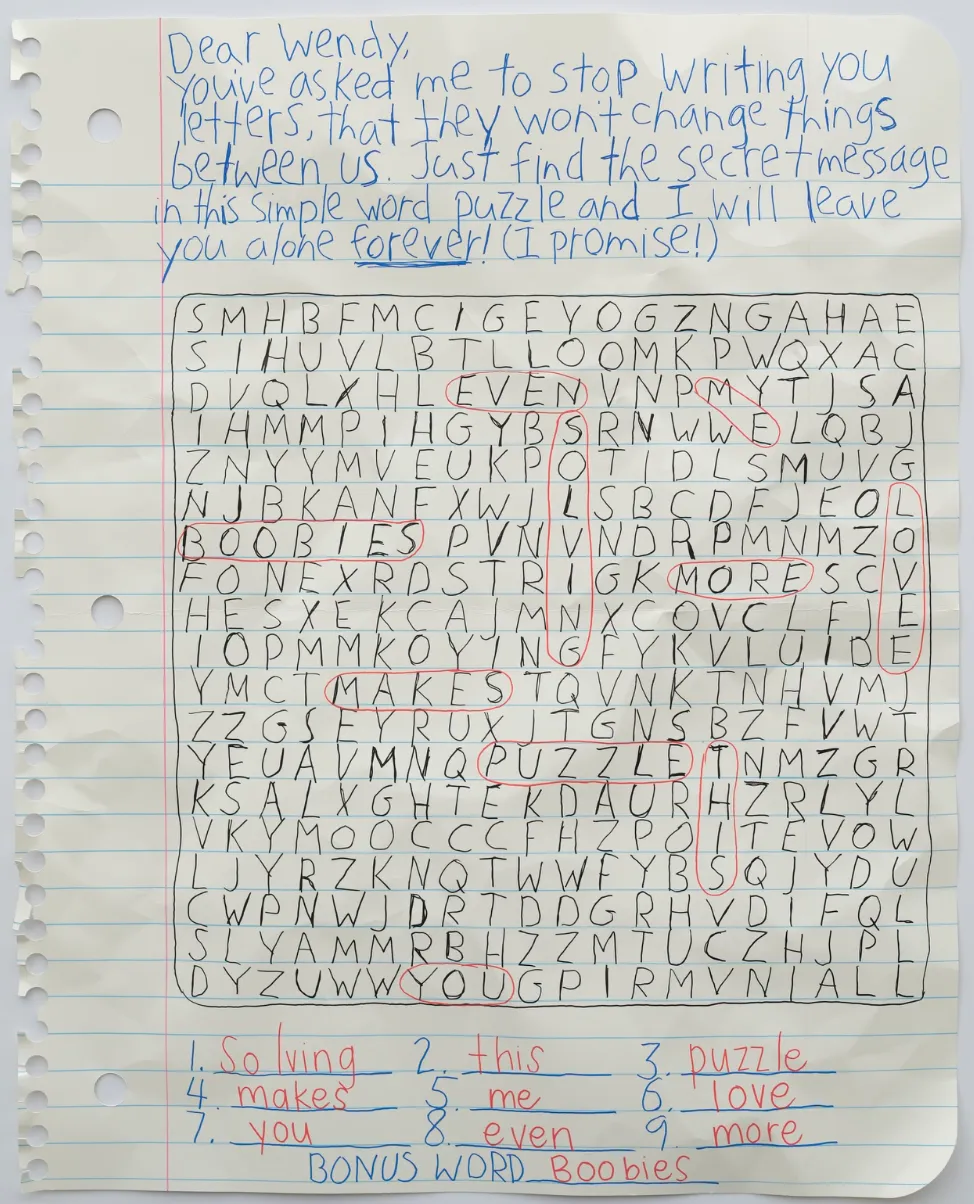 Dear Wendy,
you've asked me to stop writing you
letters, that they won't change things
between us. Just find the secret message
in this simple word puzzle and I will leave
you alone forever! (I promise!)
S M H B F M C I G E Y O G Z N G A H A E
S I H U V L B T L L O O M K P W Q X A C
D V Q L X H L E V E N V N P M Y T J S A
I H M M P I H G Y B S R N W W E L Q B J
Z N Y Y M V E U K P O T I D L S M U V G
N J B K A N F X W J L S B C D F J E O L
B O O B I E S P V N V N D R P M N M Z O
F O N E X R D S T R I G K M O R E S C V
H E S X E K C A J M N X C O V C L F J E
I O P M M K O Y J N G F Y K V L U I D E
Y M C T M A K E S T Q V N K T N H V M J
Z Z G S E Y R U X J T G N S B Z F V W T
Y E U A V M N Q P U Z Z L E T N M Z G R
K S A L X G H T E K D A U R H Z R L Y L
V K Y M O O C C C F H Z P O I T E V O W
L J Y R Z K N Q T W W F Y B S Q J Y D U
C W P N W J D R T D D G R H V D I F Q L
S L Y A M M R B H Z Z M T U C Z H J P L
D Y Z U W W Y O U G P I R M V N I A L L
1. Solving 2. this 3. puzzle
4. makes 5. me 6. love
7. you 8. even 9. more
BONUS WORD Boobies